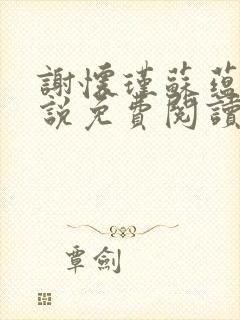 謝懷瑾蘇蘊
說免費閱讀
覃劍